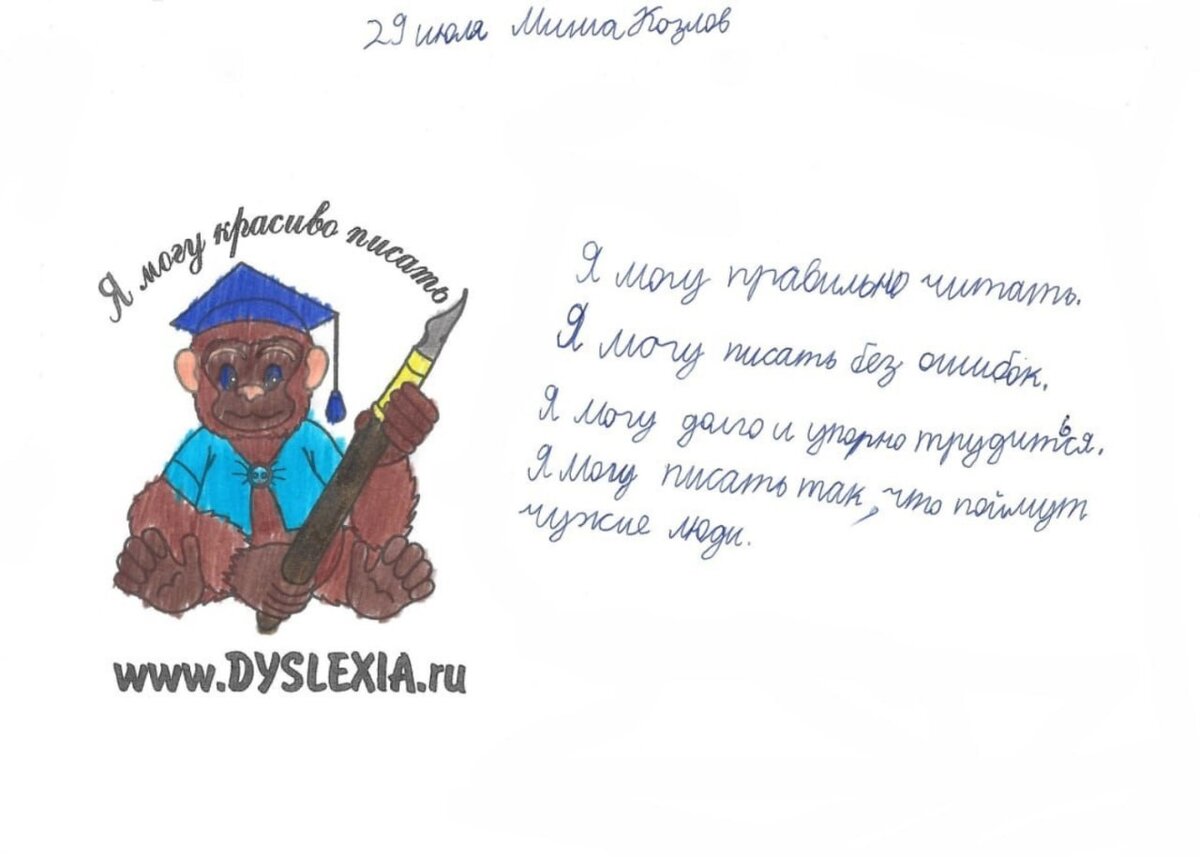 29 июля Миша Козлов
Я могу красиво писать
Я могу правильно читать.
Я могу писать без ошибок.
Я могу долго и упорно трудиться.
Я могу писать так, что поймут
чужие люди.
www.DYSLEXIA.ru